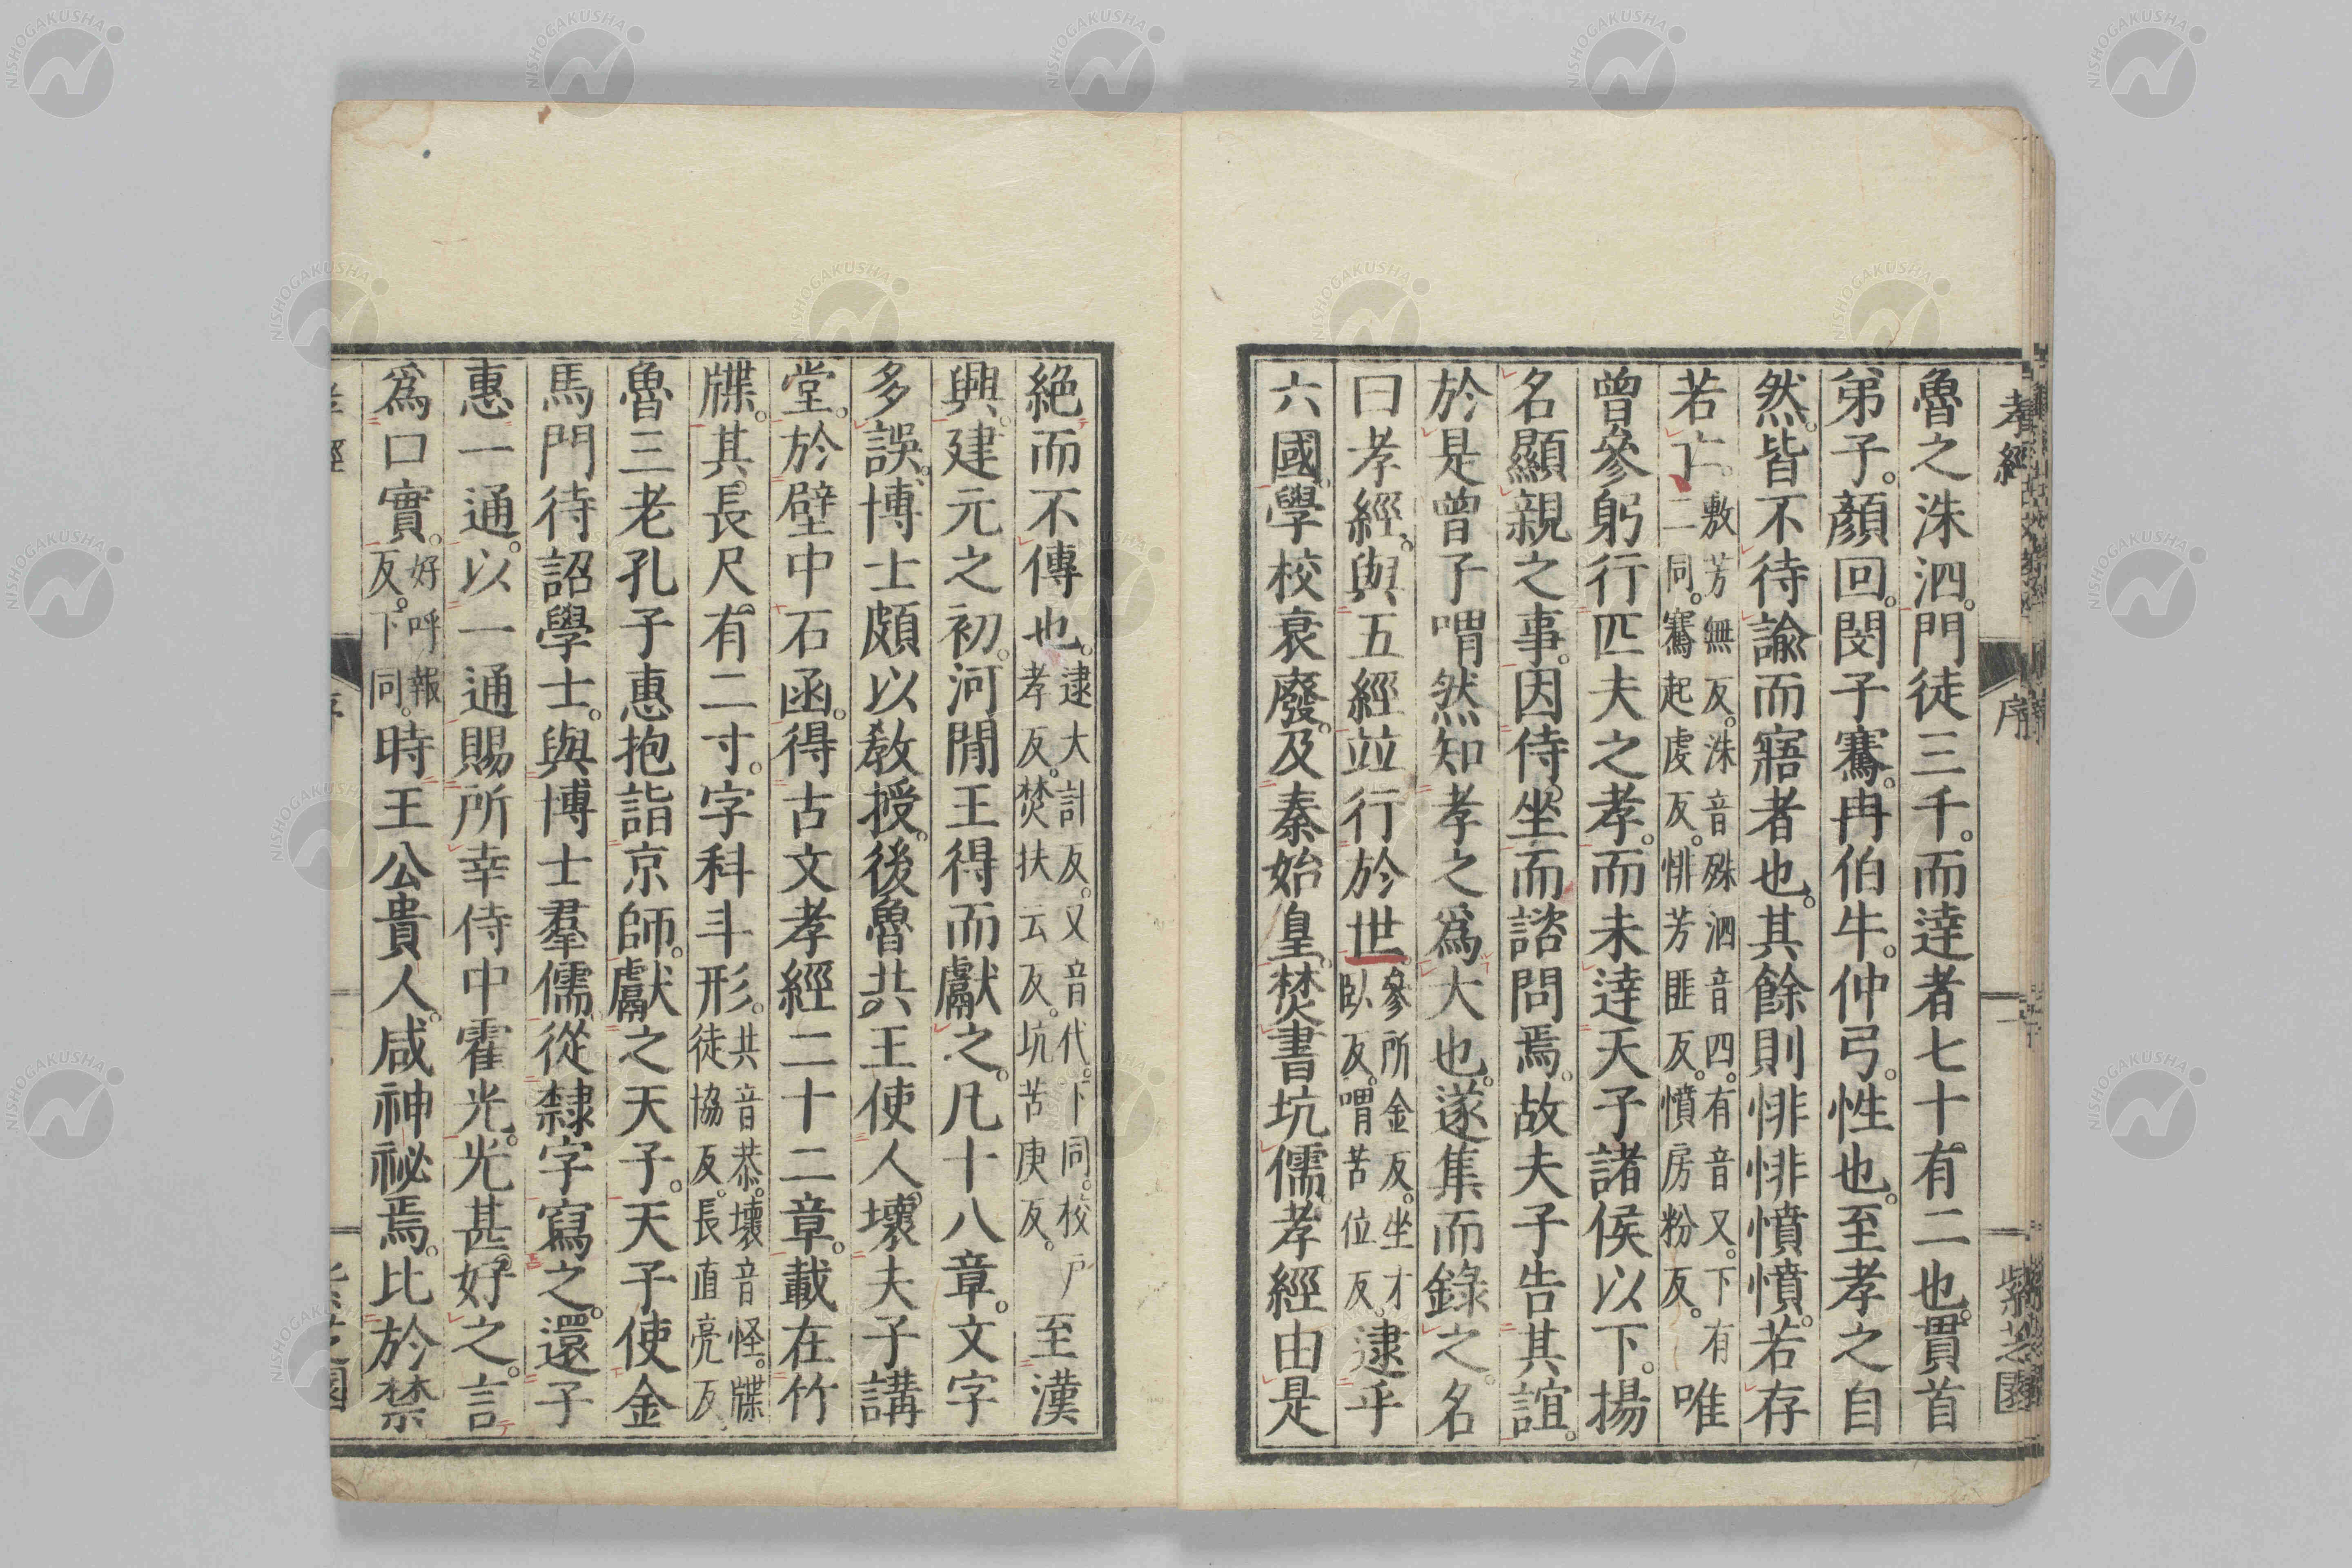 孝經
序
紫芝園
魯之洙泗。門徒三千。而達者七十有二也。貫首
弟子。顏回。閔子騫。冉伯牛。仲弓。性也。至孝之自
然。皆不待諭而寤者也。其餘則悱悱憤憤。若存
若亡。敷芳無反。洙音殊泗音四。有音又。下有二同。騫起虔反。悱芳匪反。憤房粉反。唯
曾參躬行匹夫之孝。而未達天子諸侯以下。揚
名顯親之事。因侍坐而諮問焉。故夫子告其誼。
於是曾子喟然知孝之爲大也。遂集而錄之。名
曰孝經。與五經竝行於世。參所金反。坐才臥反。喟苦位反。逮乎
六國。學校衰廢。及秦始皇。焚書坑儒。孝經由是
絕而不傳也。逮大計反。又音代。下同。校戶孝反。焚扶云反。坑苦庚反。至漢
興。建元之初。河閒王得而獻之。凡十八章。文字
多誤。博士頗以敎授。後魯共王使人壞夫子講
堂。於壁中石函。得古文孝經二十二章。載在竹
牒。其長尺有二寸。字科斗形。共音恭。壞音怪。牒徒協反。長直亮反
魯三老孔子惠抱詣京師。獻之天子。天子使金
馬門待詔學士。與博士羣儒。從隸字寫之。還子
惠一通。以一通賜所幸侍中霍光。光甚好之。言
爲口實。好呼報反。下同。時王公貴人。咸神祕焉。比於禁
NISHOGAKUSHA